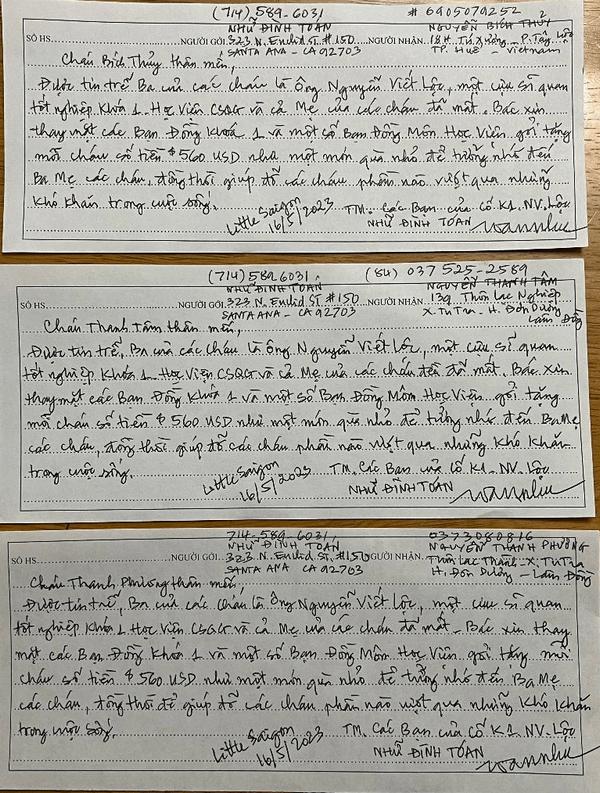 (714) 589-6031 # 6905079252
NHỮ ĐÌNH TOÁN NGUYỄN BÍCH THỦY
SỐ HS NGƯỜI GỞI 323 N. Euclid St #150 NGƯỜI NHẬN 18H. Tú Xương - P. Tây Lộc
SANTA ANA - CA 92703 TP. HUẾ - Vietnam
Cháu Bích Thủy thân mến,
Được tin trễ Ba của các cháu là Ông Nguyễn Viết Lộc, một cựu sĩ quan
tốt nghiệp Khóa 1 Học Viện CSQG và cả Mẹ của các cháu đã mất. Bác xin
thay mặt các Bạn Đồng Khoá 1 và một số Bạn Đồng Môn Học Viện gởi tặng
mỗi cháu số tiền $560 USD như một món quà nhỏ để tưởng nhớ đến
Ba Mẹ các cháu, đồng thời giúp đỡ các cháu phần nào vượt qua những
khó khăn trong cuộc sống.
Little Saigon TM. Các Bạn của cố K1. NV. Lộc
16/5/2023 NHỮ ĐÌNH TOÁN
(714) 589 6031 (84) 037 525-2589
NHỮ ĐÌNH TOÁN NGUYỄN THANH TÂM
SỐ HS NGƯỜI GỞI 323 N. Euclid St #150 NGƯỜI NHẬN 139 Thôn Lạc Nghiệp
SANTA ANA - CA 92703 X. TuTra - H. Đơn Dương
Lâm Đồng
Cháu Thanh Tâm thân mến,
Được tin trễ, Ba của các cháu là Ông Nguyễn Viết Lộc, một cựu sĩ quan
tốt nghiệp Khóa 1 Học Viện CSQG và cả Mẹ của các cháu đều đã mất. Bác xin
thay mặt các Bạn Đồng Khóa 1 và một số Bạn Đồng Môn Học Viện gởi tặng
mỗi cháu số tiền $560 USD như một món quà nhỏ để tưởng nhớ đến Ba Mẹ
các cháu, đồng thời giúp đỡ các cháu phần nào vượt qua những khó khăn
trong cuộc sống.
Little Saigon TM. Các Bạn của cố K1. NV. Lộc
16/5/2023 NHỮ ĐÌNH TOÁN
714-589-6031 0373080816
NHỮ ĐÌNH TOÁN NGUYỄN THANH PHƯƠNG
SỐ HS NGƯỜI GỞI 323 N. Euclid St. #150 NGƯỜI NHẬN Thôn Lạc Thạnh - X. TuTra
SANTA ANA CA 92703 H. Đơn Dương - Lâm Đồng
Cháu Thanh Phương thân mến,
Được tin trễ, Ba của các cháu là Ông Nguyễn Viết Lộc, một cựu sĩ quan
tốt nghiệp Khóa 1 Học Viện CSQG và cả Mẹ của các cháu đã mất. Bác xin thay
mặt các Bạn Đồng Khóa 1 và một số Bạn Đồng Môn Học Viện gởi tặng mỗi
cháu số tiền $560 USD như một món quà nhỏ để tưởng nhớ đến Ba Mẹ
các cháu, đồng thời để giúp đỡ các cháu phần nào vượt qua những khó khăn
trong cuộc sống.
Little Saigon TM. Các Bạn của cố K1. NV. Lộc
16/5/2023 NHỮ ĐÌNH TOÁN